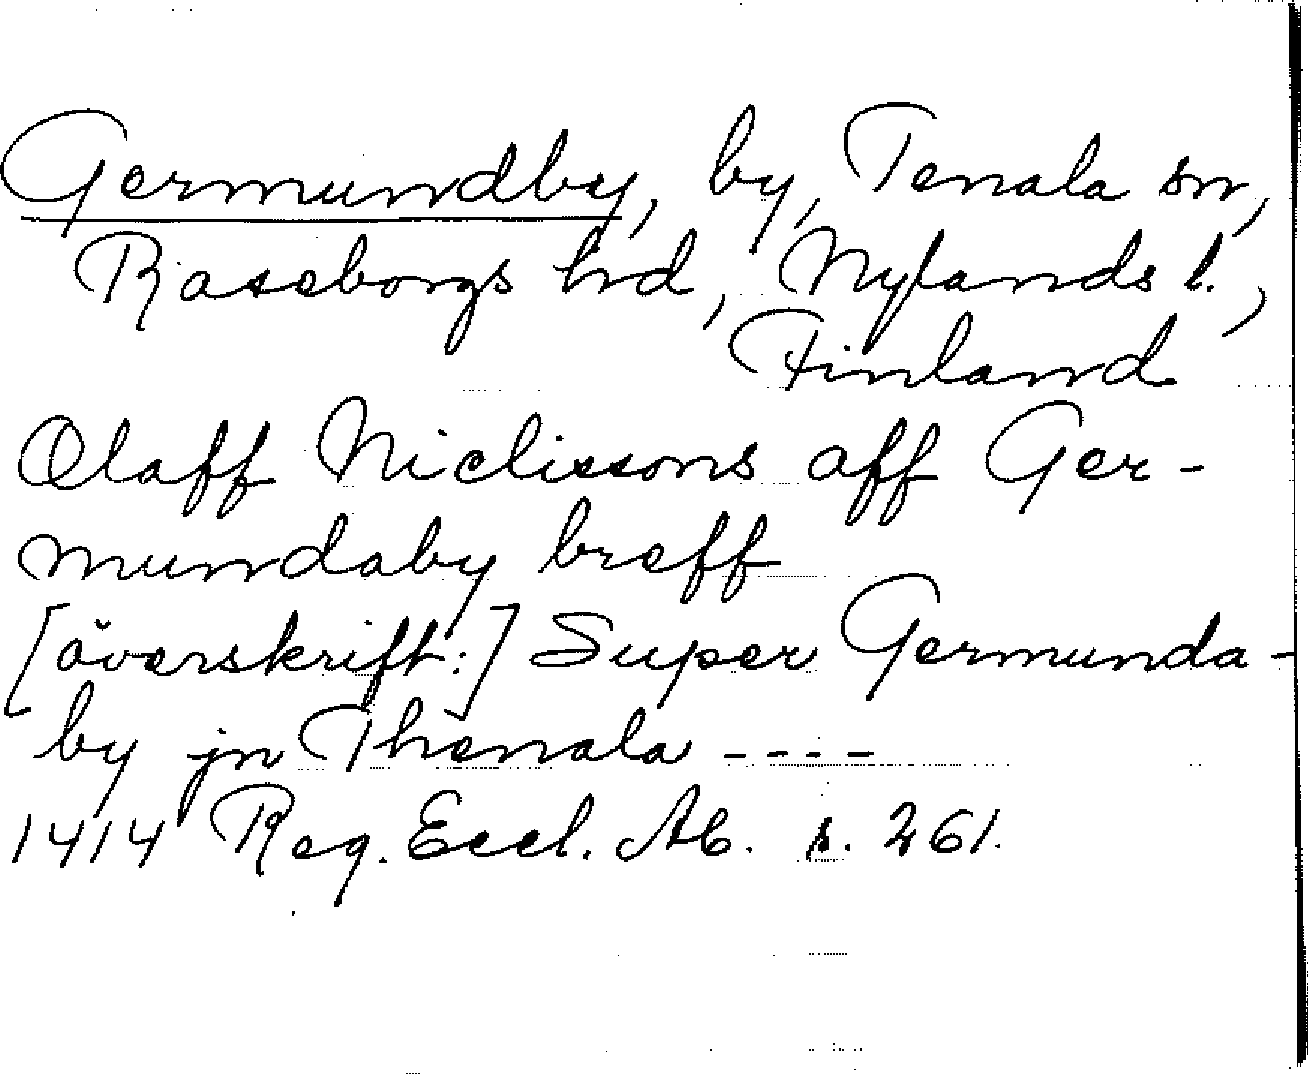 Germundby, by, Tenala sn,
Raseborgs hrd, Nylands l.,
Finland
Olaff Niclissons aff Ger-
mundaby breff
[överskrift:] Super Germunda-
by jn Thenala ----
1414 Reg. Eccl. Ab. s. 261.